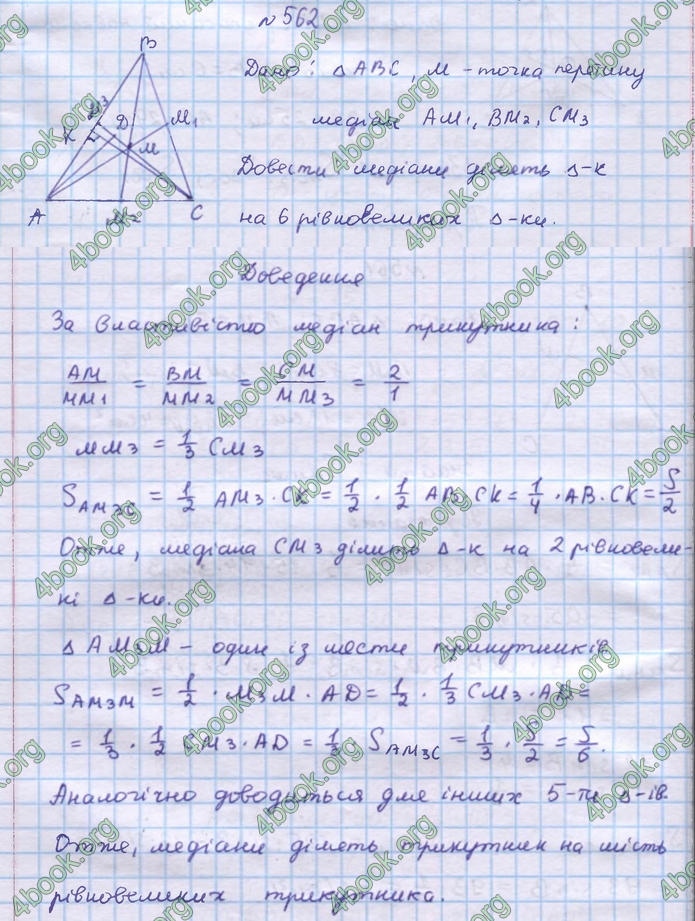 №562
B
M3
K
D
M1
M
A
M2
C
Дано: ΔABC, M - точка перетину
медіан AM1, BM2, CM3
Довести: медіани ділять Δ-к
на 6 рівновеликих Δ-ки.
Доведення
За властивістю медіан трикутника:
AM/MM1 = BM/MM2 = CM/MM3 = 2/1
MM3 = 1/3 CM3
S AM3C = 1/2 AM3 · CK = 1/2 · 1/2 AB · CK = 1/4 · AB · CK = S/2
Отже, медіана CM3 ділить Δ-к на 2 рівновели-
кі Δ-ки.
Δ AM3M - один із шести трикутників
S AM3M = 1/2 · M3M · AD = 1/2 · 1/3 CM3 · AD =
= 1/3 · 1/2 CM3 · AD = 1/3 S AM3C = 1/3 · S/2 = S/6.
Аналогічно доводиться для інших 5-ти Δ-ів.
Отже, медіани ділять трикутник на шість
рівновеликих трикутника.
4book.org